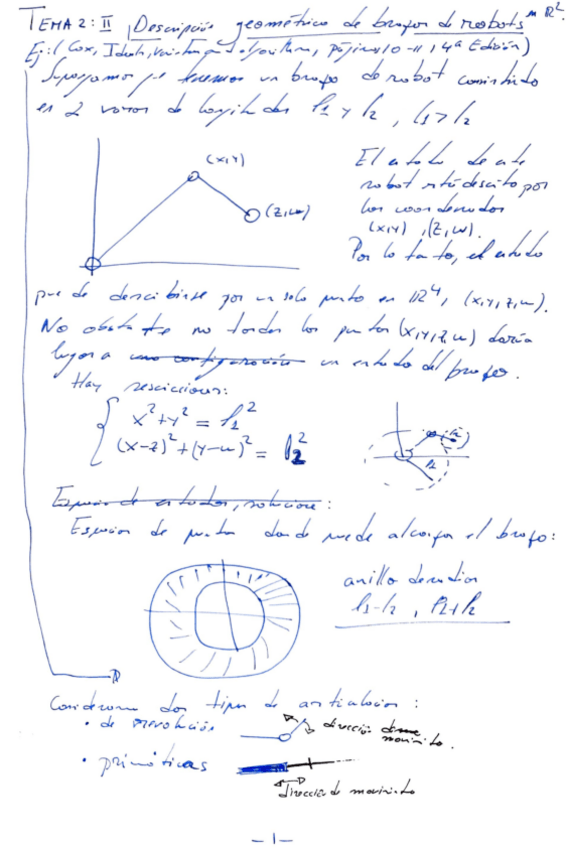 TEMA 2: II Descripción geométrica de brazos de robots en R².
Ej: (Cox, Ideals, Varieties and Algorithms, páginas 10-11, 4ª Edición)
Supongamos que tenemos un brazo de robot consistindo
en 2 varas de longitudes l1 y l2, l1 > l2
(x,y)
(z,w)
El estado de este
robot está descrito por
las coordenadas
(x,y), (z,w).
Por lo tanto, el estado
puede describirse por un solo punto en R⁴, (x,y,z,w).
No obstante no todos los puntos (x,y,z,w) daría
lugar a una configuración un estado del brazo.
Hay restricciones:
x² + y² = l1²
(x-z)² + (y-w)² = l2²
Espacio de estados, soluciones:
Espacios de puntos donde puede alcanzar el brazo:
anillo de radios
l1-l2, l1+l2
Consideramos dos tipos de articulación:
• de revolución
dirección de movimiento.
• prismáticas
Dirección de movimiento
-1-